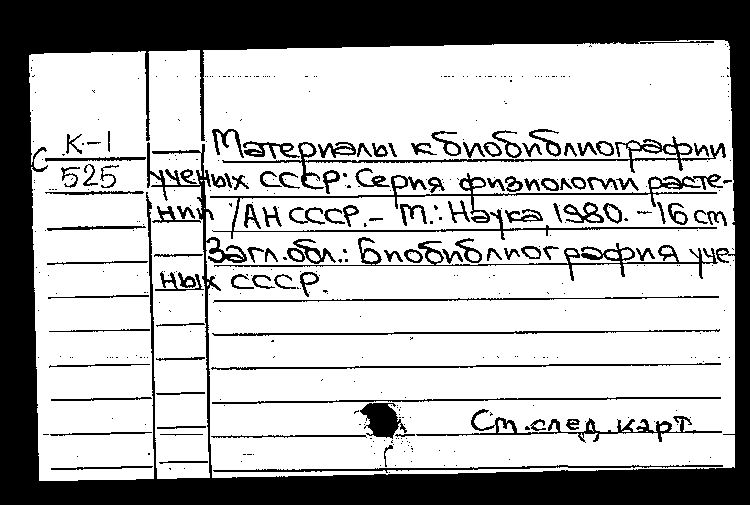 К-1
С
525
Материалы к биобиблиографии
ученых СССР: Серия физиологии расте-
ний / АН СССР. - М.: Наука, 1980. - 16 см
Загл. обл.: Биобиблиография уче
ных СССР.
См. след. карт.